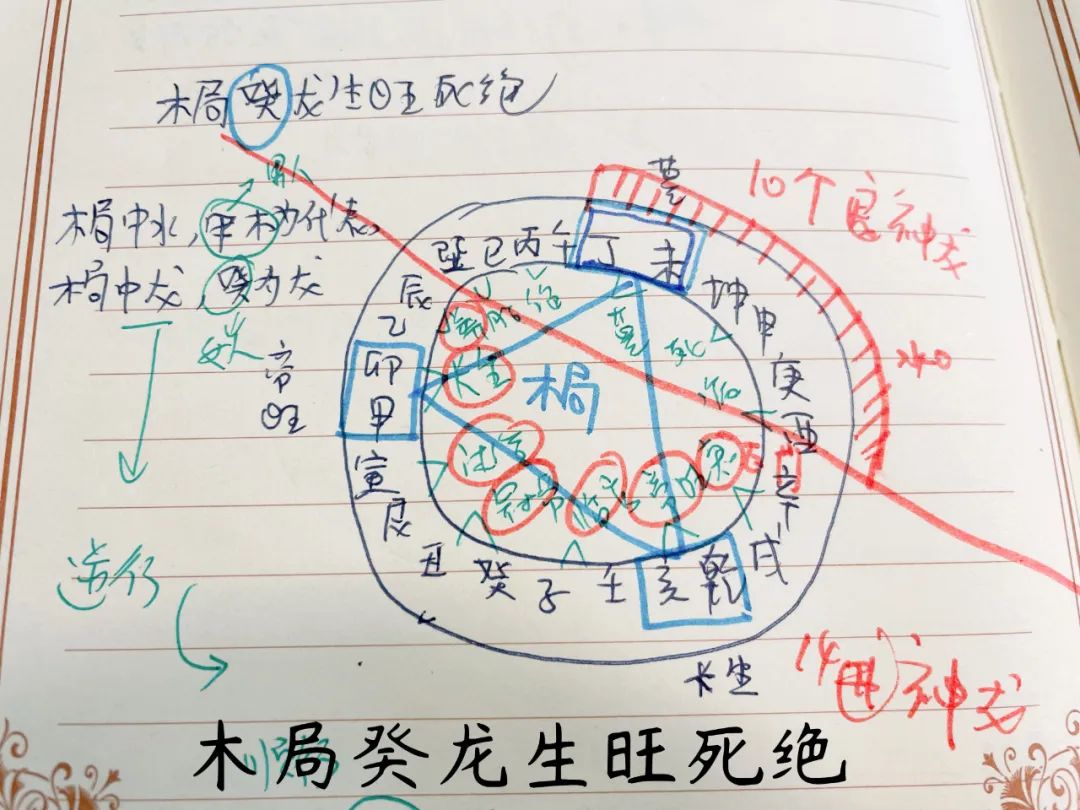 木局癸龙生旺死绝
男人
木局中水,甲木为代表,
木局中龙,癸为龙
女
逆行
10个
神龙
水口
墓
巽巳丙午丁未
坤申庚酉辛戌
乾亥壬子癸丑
卯甲
乙辰
帝旺
养胎绝
墓死病
长生
沐浴
冠带
临官
帝旺
衰
木局
长生
14
神龙
木局癸龙生旺死绝